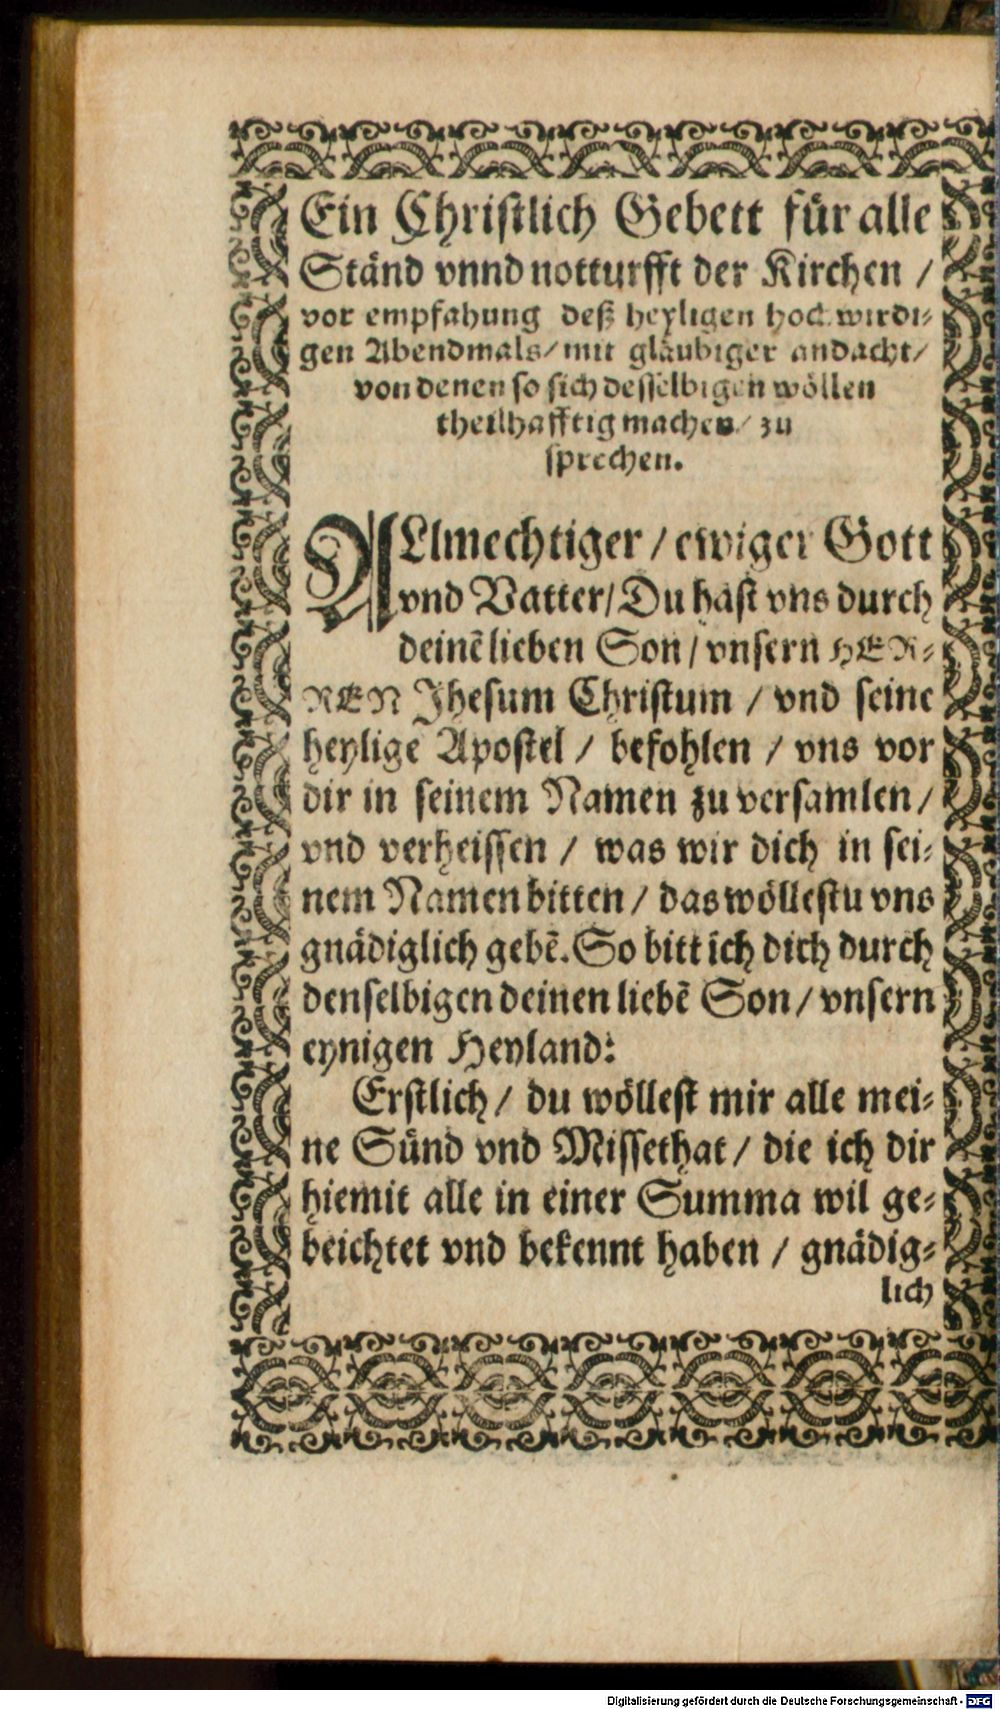 Ein Christlich Gebett für alle
Ständ vnnd notturfft der Kirchen /
vor empfahung deß heyligen hochwirdi⸗
gen Abendmals / mit gläubiger andacht /
von denen so sich desselbigen wöllen
theilhafftig machen / zu
sprechen.
ALlmechtiger / ewiger Gott
vnd Vatter / Du hast vns durch
deinē lieben Son / vnsern HER⸗
REN Jhesum Christum / vnd seine
heylige Apostel / befohlen / vns vor
dir in seinem Namen zu versamlen /
vnd verheissen / was wir dich in sei⸗
nem Namen bitten / das wöllestu vns
gnädiglich gebē. So bitt ich dich durch
denselbigen deinen liebē Son / vnsern
eynigen Heyland:
Erstlich / du wöllest mir alle mei⸗
ne Sünd vnd Missethat / die ich dir
hiemit alle in einer Summa wil ge⸗
beichtet vnd bekennt haben / gnädig⸗
lich
Digitalisierung gefördert durch die Deutsche Forschungsgemeinschaft - DFG